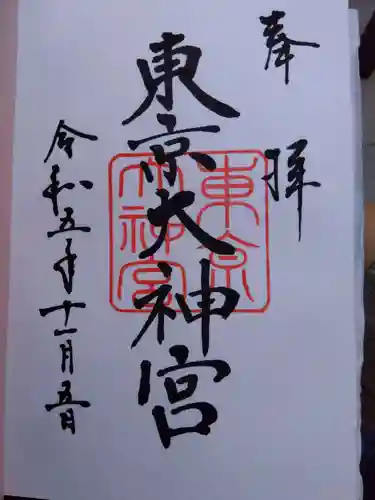 奉拝
東京大神宮
東京大神宮
令和五年十一月五日